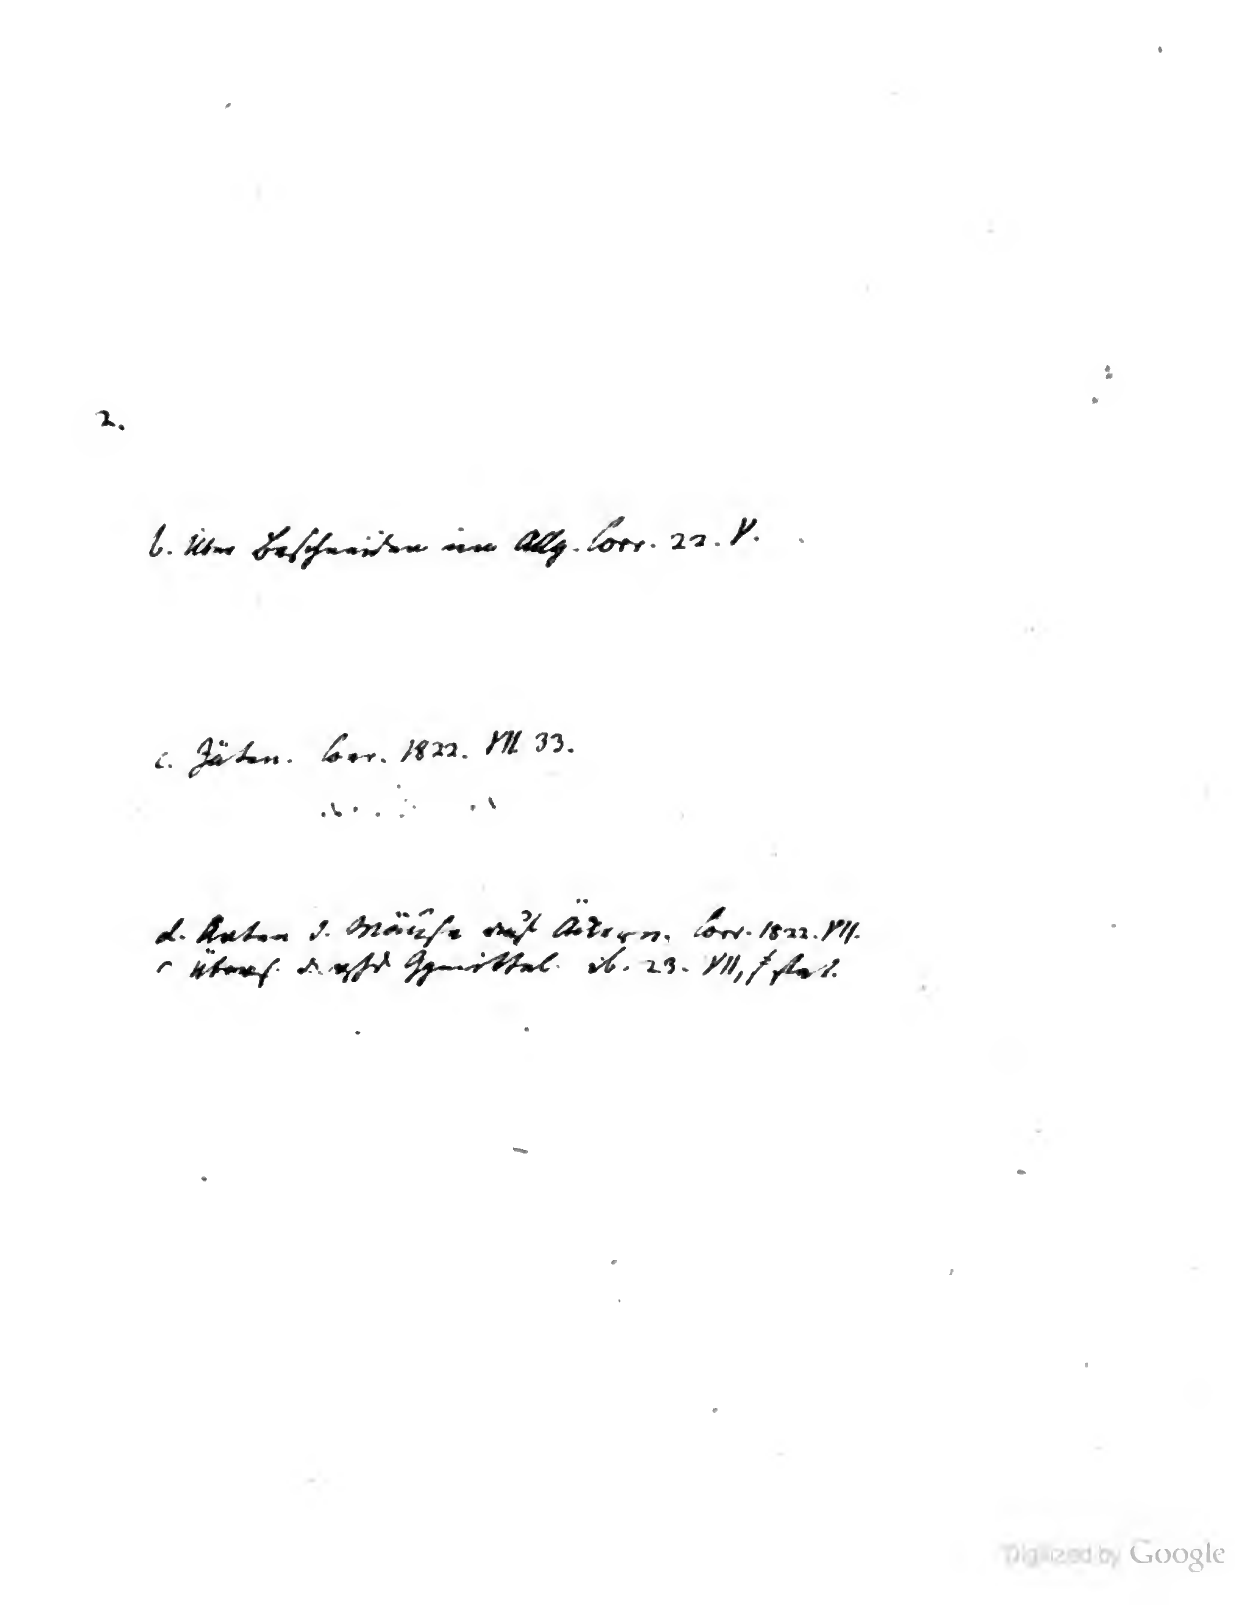 2.
b. Über Beschneiden im Allg. Corr. 22. V.
c. Jäten. Corr. 1822. VII 33.
d. Arten d. Mäuse auf Äckern. Corr. 1822. VII.
Gegmittel ib. 23. VII,
Digitized by Google